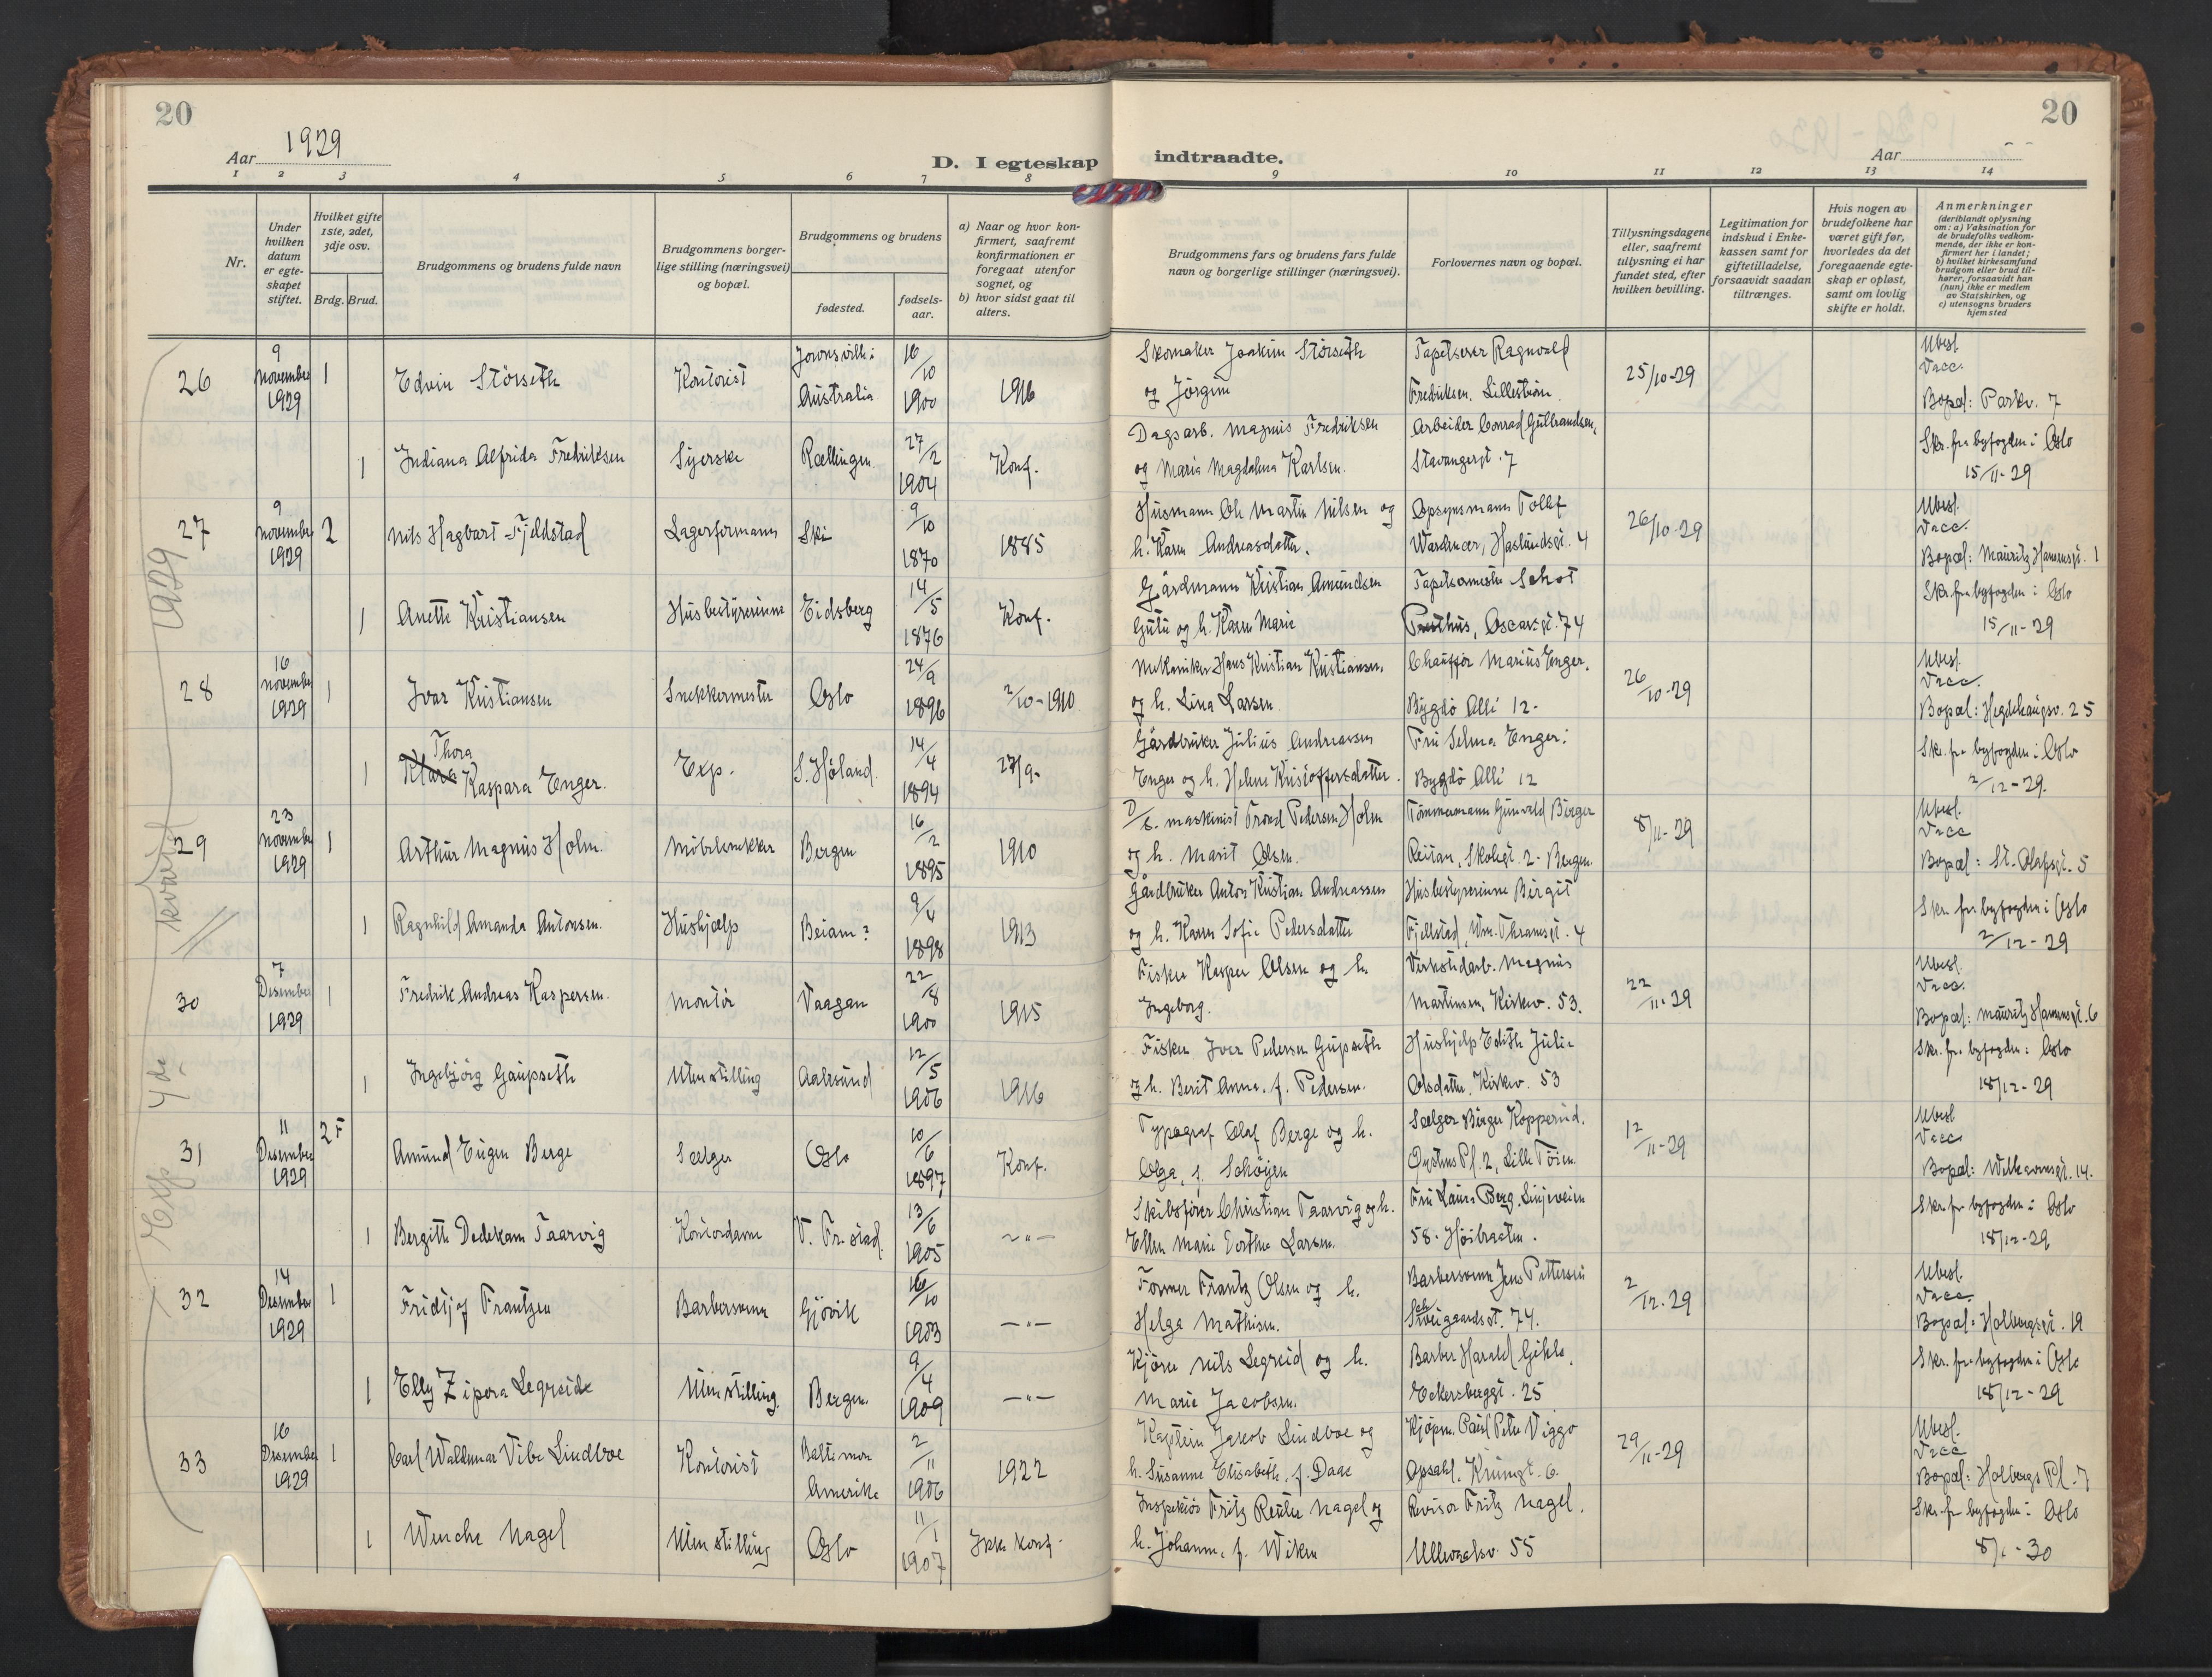 20
Aar 1929
D. I egteskap
1 2 3 4 5 6 7 8
Nr.
Under hvilken datum er egteskapet stiftet.
Hvilket gifte 1ste, 2det, 3dje osv.
Brdg. Brud.
Brudgommens og brudens fulde navn
Brudgommens borgerlige stilling (næringsvei) og bopæl.
Brudgommens og brudens
fødested.
fødselsaar.
a) Naar og hvor konfirmert, saafremt konfirmationen er foregaat utenfor sognet, og
b) hvor sidst gaat til alters.
26 9 november 1929 1 Edvin Störseth Kontorist Australia 16/10 1900 1916
1 Indiana Alfrida Fredriksen Syerske Rællingen 27/2 1904 Konf.
27 9 november 1929 2 Nils Hagbart Fjeldstad Lagerformann Ski 9/10 1870 1885
1 Anette Kristiansen Husbestyrerinne Eidsberg 14/5 1876 Konf.
28 16 november 1929 1 Ivar Kristiansen Snekkermester Oslo 24/9 1896 2/10-1910
1 Thora Klara Kaspara Enger. Exp. S. Höland. 14/4 1894 27/9-
29 23 november 1929 1 Arthur Magnus Holm. Möbelsnekker Bergen 16/2 1895 1910
1 Ragnhild Amanda Antonsen. Hushjælp Beiarn? 9/4 1898 1913
30 7 Desember 1929 1 Fredrik Andreas Kaspersen. Montör Vaagan 22/8 1900 1915
1 Ingebjörg Gaupseth Uten stilling Aalesund 12/5 1906 1916
31 11 Desember 1929 2 F Amund Eugen Berge Sælger Oslo 10/6 1897 Konf.
1 Bergitte Dedekam Taarvig Kontordame V. Fr.stad. 13/6 1905 -"-
32 14 Desember 1929 1 Fridtjof Frantzen Barbersvenn Gjövik 16/10 1903 -"-
1 Elly Zipora Legreide Uten stilling. Bergen. 9/4 1909 -"-
33 16 Desember 1929 1 Carl Waldemar Vibe Lindboe Kontorist Baltimore Amerika 2/11 1906 1922
1 Wenche Nagel Uten stilling Oslo 11/1 1907 Ikke konf.
4de kvartal 1929
20
Aar
indtraadte.
9 10 11 12 13 14
Brudgommens fars og brudens fars fulde navn og borgerlige stillinger (næringsvei).
Forlovernes navn og bopæl.
Tillysningsdagene eller, saafremt tillysning ei har fundet sted, efter hvilken bevilling.
Legitimation for indskud i Enkekassen samt for giftetilladelse, forsaavidt saadan tiltrænges.
Hvis nogen av brudefolkene har været gift før, hvorledes da det foregaaende egteskap er opløst, samt om lovlig skifte er holdt.
Anmerkninger
(deriblandt oplysning om: a) Vaksination for de brudefolks vedkommende, der ikke er konfirmert her i landet;
b) hvilket kirkesamfund brudgom eller brud tilhører, forsaavidt han (hun) ikke er medlem av Statskirken, og
c) utensogns bruders hjemsted
Skomaker Joakim Störseth
og Jörgine
Tapetserer Ragnvald
Fredriksen. Lilleström.
25/10-29
Ubesl.
Vacc.
Bopæl: Parkv. 7
Dagsarb. Magnus Fredriksen
og Maria Magdalena Karlsen.
Arbeider Conrad Gulbrandsen,
Stavangergt. 7
Skr. fra byfogden i Oslo
15/11-29
Husmann Ole Martin Nilsen og
h. Karen Andreasdatter.
Opsynsmann Tollef
Haslundsgt. 4
26/10-29
Ubesl.
Vacc.
Bopæl: Mauritz Hansensgt. 1
Gårdmann Kristian Amundsen
og h. Karen Marie
Tapetsermester Schot
Oscarsgt. 74
Skr. fra byfogden i Oslo
15/11-29
Mekaniker Hans Kristian Kristiansen.
og h. Lina Larsen
Chauffør Marius Enger.
Bygdö Allé 12-
26/10-29
Ubesl.
Vacc.
Bopæl: Hegdehaugsv. 25
Gårdbruker Julius Andreassen
Enger og h. Helene Kristoffersdatter.
Fru Selma Enger:
Bygdö Allé 12
Skr. fra byfogden i Oslo
2/12-29.
D/S. maskinist Trond Pedersen Holm
og h. Marit Olsen.
Tömmermann Gunvald Birger
Reitan, Skolegt. 2- Bergen.
8/11-29
Ubesl.
Vacc
Bopæl: St. Olafsgt. 5
Gårdbruker Anton Kristian Andreassen
og h. Karen Sofie Pedersdatter
Husbestyrerinne Birgit
Fjellstad, Wm. Thranesgt. 4
Skr. fra byfogden i Oslo
2/12-29
Fisker Kasper Olsen og h.
Ingeborg.
Verkstedarb. Magnus
Martinsen, Kirkev. 53.
22/11-29
Ubesl.
Vacc.
Bopæl: Mauritz Hansensgt. 6
Fisker Iver Pedersen Gupseth
og h. Berit Anna, f. Pedersen.
Hushjelp Edith Julie
Olsdatter. Kirkev. 53
Skr. fra byfogden i Oslo
18/12-29
Typograf Olaf Berge og h.
Olga, f. Schöyen
Sælger Birger Kopperud.
Pl. 2, Lille Töien
12/11-29
Ubesl.
Vacc
Bopæl: Welhavensgt. 14.
Skibsförer Christian Taarvig og h.
Ellen Marie Dorthea Larsen.
Fru Laura Berg. Linjeveien
58. Höibraaten.
Skr. fra byfogden i Oslo
18/12-29
Former Frantz Olsen og h.
Helga Mathisen.
Barbersvenn Jens Pettersen
Schweigaardsgt. 74.
2/12-29
Ubesl.
Vacc.
Bopæl: Holbergsgt. 19
Kjörer Nils Legreid og h.
Marie Jacobsen.
Barber Harald Gihle,
Eckersberggt. 25
Skr. fra byfogden i Oslo
18/12-29
Kaptein Jakob Lindboe og
h. Susanne Elisabeth, f. Daae
Kjöpm. Carl Peter Viggo
Opsahl. Krumgt. 6.
29/11-29
Ubesl.
Vacc
Bopæl: Holbergs Pl. 7
Inspektör Fritz Reuter Nagel og
h. Johanne, f. Wiken
Revisor Fritz Nagel.
Ullevaalsv. 55
Skr. fra byfogden i Oslo
8/1-30